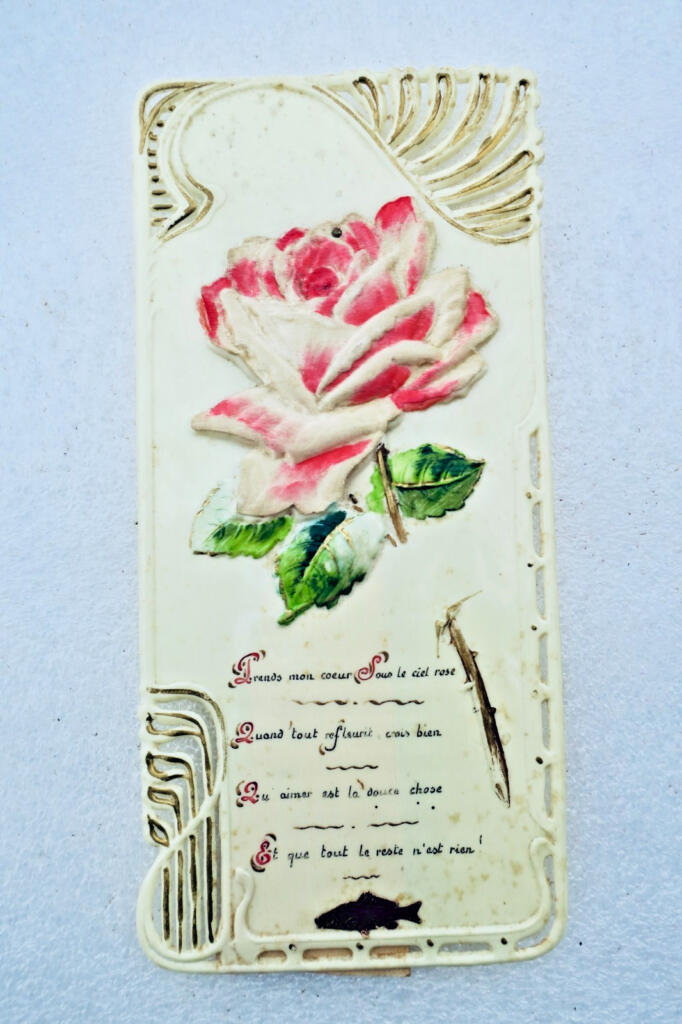 Prends mon coeur Sous le ciel rose
Quand tout refleurit crois bien
Qu'aimer est la douce chose
Et que tout le reste n'est rien !